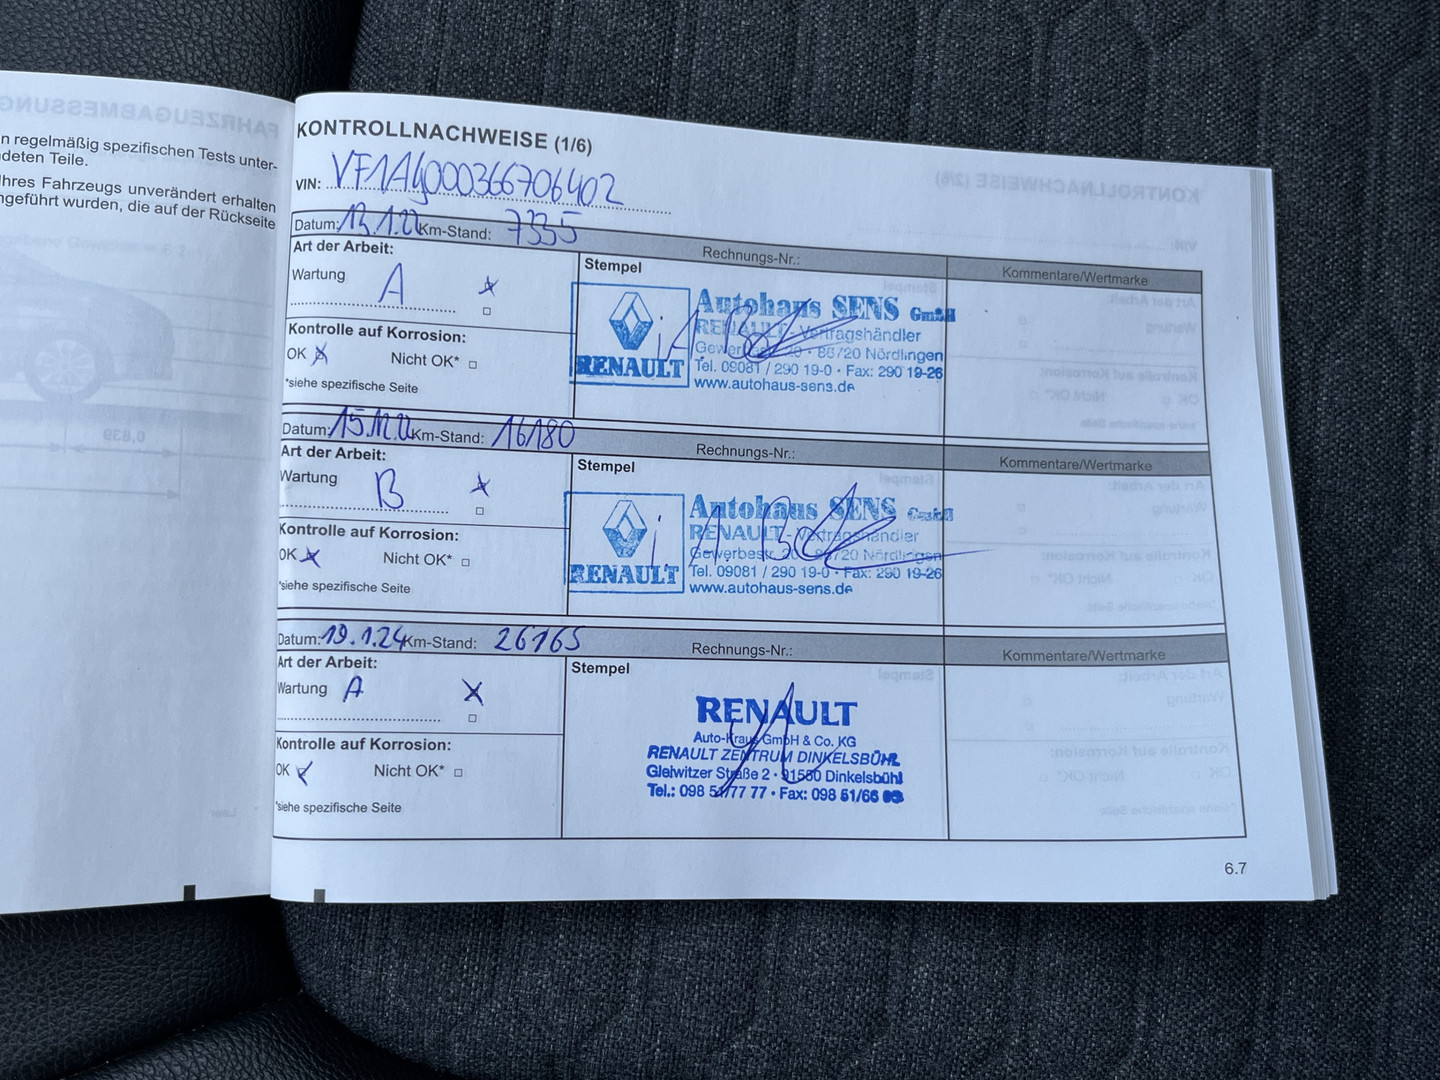 n regelmäßig spezifischen Tests unter-
deten Teile.
Ihres Fahrzeugs unverändert erhalten
ngeführt wurden, die auf der Rückseite
KONTROLLNACHWEISE (1/6)
VIN: VF1AG000366706402
Datum: 13.1.22 Km-Stand: 7335
Rechnungs-Nr.:
Kommentare/Wertmarke
Art der Arbeit:
Wartung A
Kontrolle auf Korrosion:
OK Nicht OK*
*siehe spezifische Seite
Stempel
RENAULT
Autohaus SENS GmbH
RENAULT - Vertragshändler
86720 Nördlingen
Tel. 09081 / 290 19-0 • Fax: 290 19-26
www.autohaus-sens.de
Datum: 15.12.22 Km-Stand: 16180
Rechnungs-Nr.:
Kommentare/Wertmarke
Art der Arbeit:
Wartung B
Kontrolle auf Korrosion:
OK Nicht OK*
*siehe spezifische Seite
Stempel
RENAULT
Autohaus SENS GmbH
RENAULT - Vertragshändler
Gewerbestr. 20 • 86720 Nördlingen
Tel. 09081 / 290 19-0 • Fax: 290 19-26
www.autohaus-sens.de
Datum: 19.1.24 Km-Stand: 26165
Rechnungs-Nr.:
Kommentare/Wertmarke
Art der Arbeit:
Wartung A
Kontrolle auf Korrosion:
OK Nicht OK*
*siehe spezifische Seite
Stempel
RENAULT
Auto-Kraus GmbH & Co. KG
RENAULT ZENTRUM DINKELSBÜHL
Gleiwitzer Straße 2 • 91550 Dinkelsbühl
Tel.: 098 51/77 77 • Fax: 098 51/66
6.7